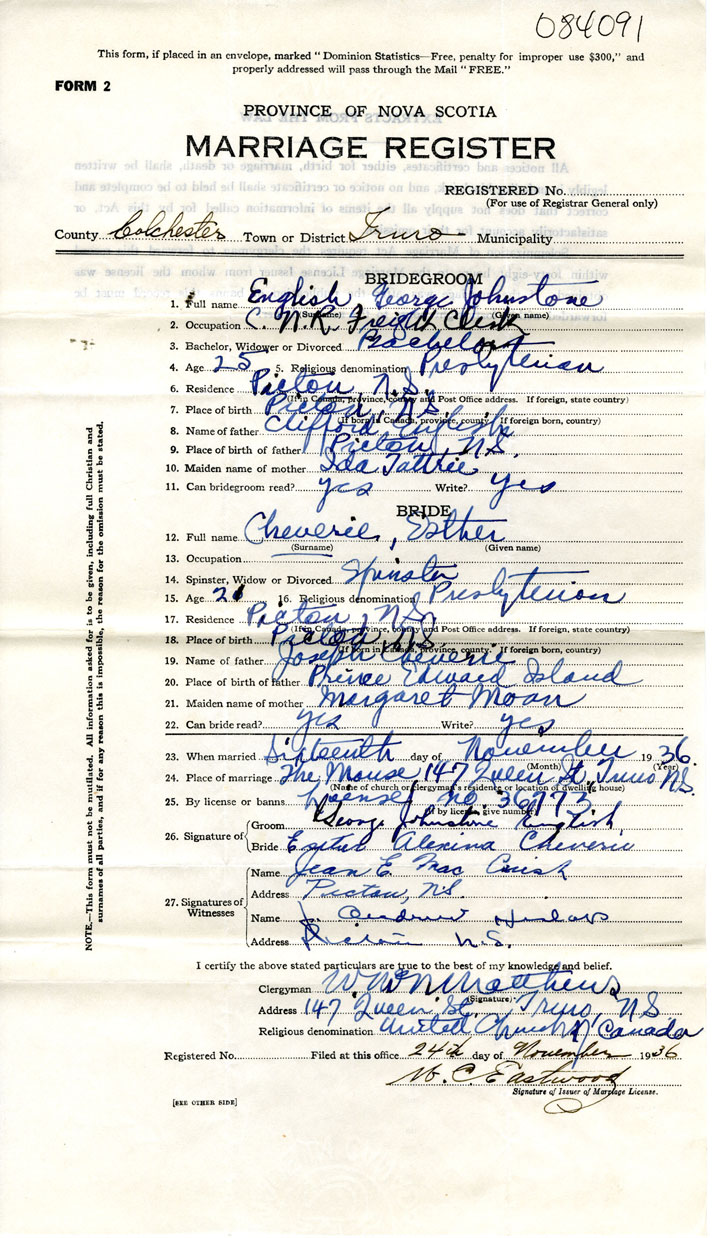 084091
This form, if placed in an envelope, marked "Dominion Statistics—Free, penalty for improper use $300," and
properly addressed will pass through the Mail "FREE."
FORM 2
PROVINCE OF NOVA SCOTIA
MARRIAGE REGISTER
REGISTERED No.
(For use of Registrar General only)
County Colchester Town or District Truro Municipality
BRIDEGROOM
1. Full name English George Johnstone
(Surname) (Given name)
2. Occupation C. N. R. Freight Clerk
3. Bachelor, Widower or Divorced Bachelor
4. Age 25 5. Religious denomination Presbyterian
6. Residence Pictou, N.S.
(If in Canada, province, county and Post Office address. If foreign, state country)
7. Place of birth Pictou, N.S.
(If born in Canada, province, county. If foreign born, country)
8. Name of father Clifford English
9. Place of birth of father Pictou, N.S.
10. Maiden name of mother Ida Tattrie
11. Can bridegroom read? yes Write? yes
BRIDE
12. Full name Cheverie, Esther
(Surname) (Given name)
13. Occupation
14. Spinster, Widow or Divorced Spinster
15. Age 21 16. Religious denomination Presbyterian
17. Residence Pictou, N.S.
(If in Canada, province, county and Post Office address. If foreign, state country)
18. Place of birth Pictou, N.S.
(If born in Canada, province, county. If foreign born, country)
19. Name of father Joseph Cheverie
20. Place of birth of father Prince Edward Island
21. Maiden name of mother Margaret Moan
22. Can bride read? yes Write? yes
23. When married Sixteenth day of November 1936.
(Month) (Year)
24. Place of marriage The Manse 147 Queen St. Truro N.S.
(Name of church or clergyman's residence or location of dwelling house)
25. By license or banns License no. 36773
(If by license give number)
26. Signature of
Groom George Johnstone English
Bride Esther Alexina Cheverie
27. Signatures of Witnesses
Name Jean E. Mac Cuish
Address Pictou, N.S.
Name J. Andrew
Address Pictou N.S.
I certify the above stated particulars are true to the best of my knowledge and belief.
Clergyman W. M. Matthews
(Signature)
Address 147 Queen St., Truro, N.S.
Religious denomination United Church of Canada
Registered No. Filed at this office 24th day of November 1936
W. C. Eastwood
Signature of Issuer of Marriage License.
[SEE OTHER SIDE]
NOTE.—This form must not be mutilated. All information asked for is to be given, including full Christian and
surnames of all parties, and if for any reason this is impossible, the reason for the omission must be stated.